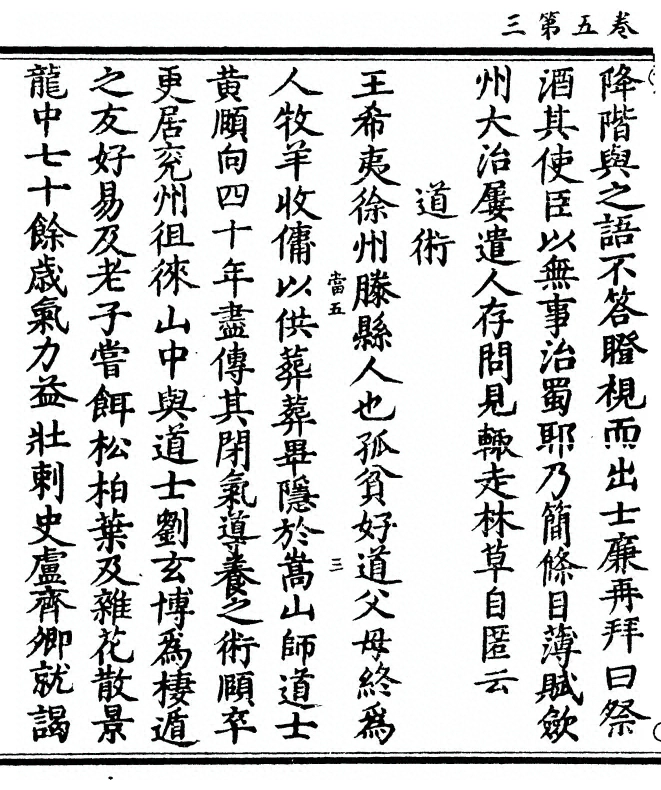 卷五第三
降階與之語不答瞪視而出士廉再拜曰祭
酒其使臣以無事治蜀耶乃簡條目薄賦斂
州大治屢遣人存問見輒走林草自匿云
道術
王希夷徐州滕縣人也孤貧好道父母終為
當五
三
人牧羊收傭以供葬葬畢隱於嵩山師道士
黃頤向四十年盡傳其閉氣導養之術頤卒
更居兗州徂徠山中與道士劉玄博為棲遁
之友好易及老子嘗餌松柏葉及雜花散景
龍中七十餘歲氣力益壯刺史盧齊卿就謁